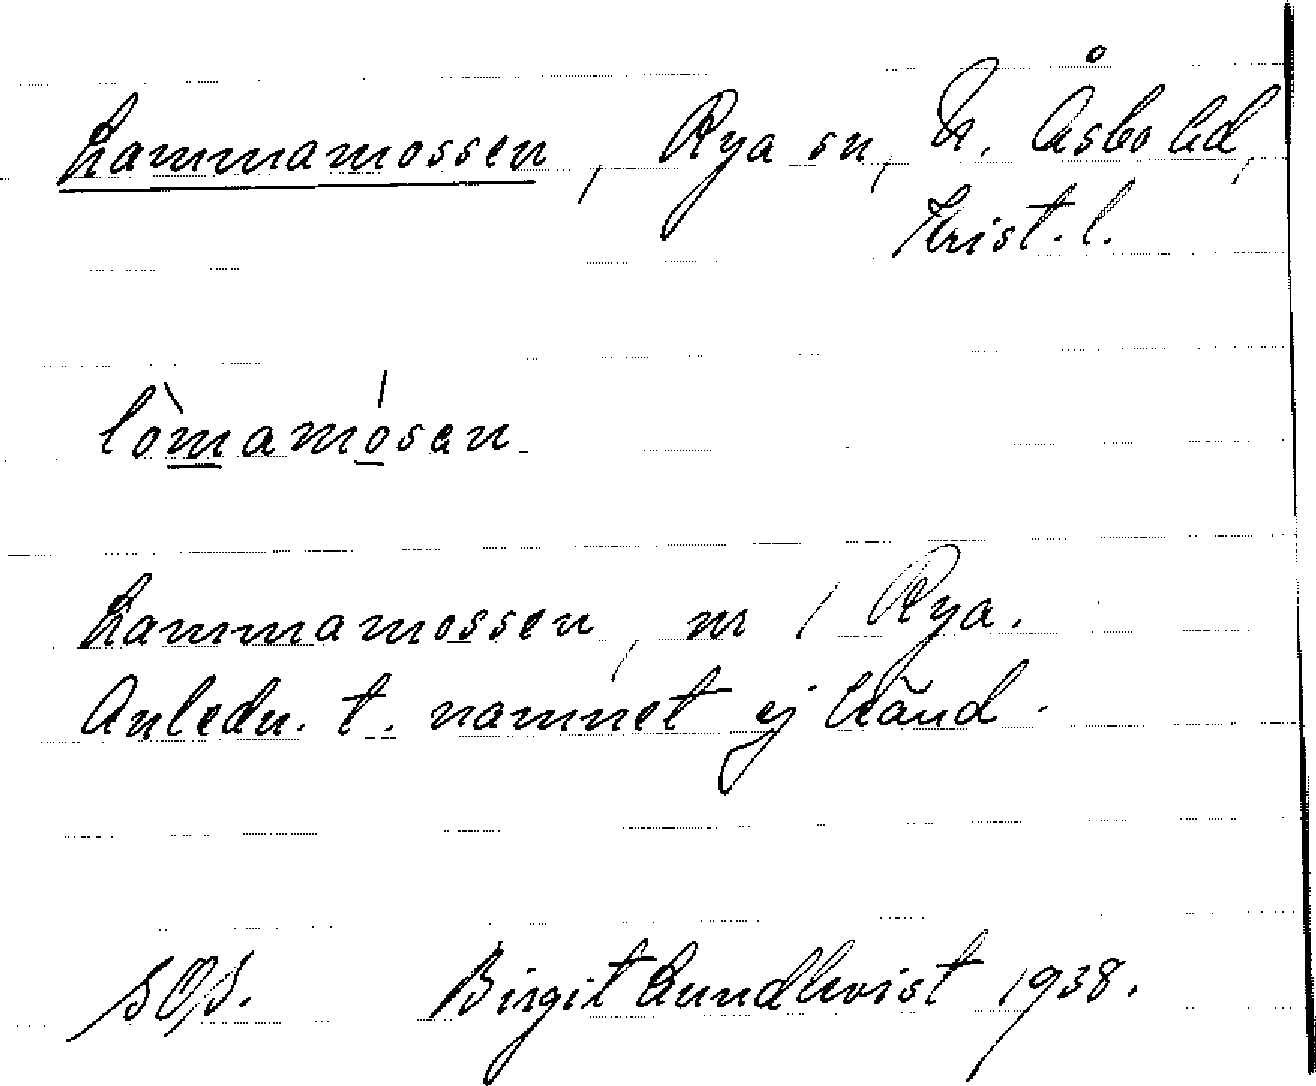 Lammamossen, Rya sn, N. Åsbo hd,
Krist. l.
lòmamósan.
Lammamossen, nr 1 Rya.
Anledn. t. namnet ej känd.
Birgit Lundkvist 1938.